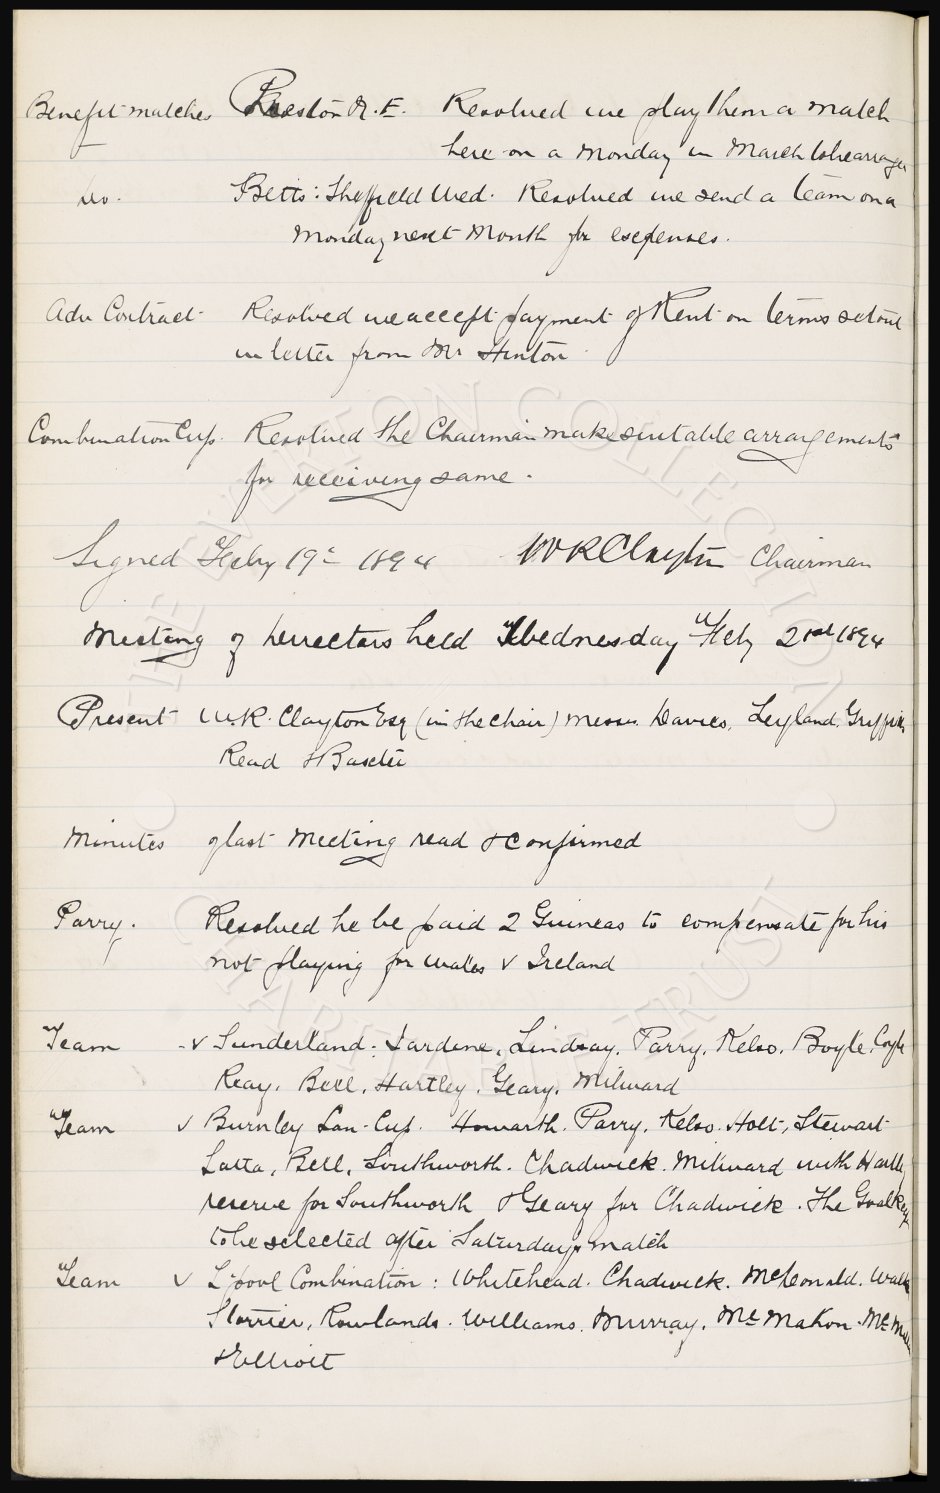 Benefit matches Preston N. E. Resolved we play them a match
here on a Monday in March to be arranged
do. Betts: Sheffield Wed. Resolved we send a team on a
Monday next Month for expenses.
Adv Contract Resolved we accept payment of Rent on terms set out
in letter from Mr Hinton
Combination Cup. Resolved the Chairman make suitable arrangements
for receiving same.
Signed Feby 19th 1894 W R Clayton Chairman
Meeting of Directors held Wednesday Feby 21st 1894
Present W.R. Clayton Esq (in the chair) Messrs. Davies, Leyland, Griffiths
Read & Baxter
Minutes of last Meeting read & confirmed
Parry. Resolved he be paid 2 Guineas to compensate for his
not playing for Wales v Ireland
Team v Sunderland: Jardine, Lindsay, Parry, Kelso, Boyle, Coyle
Reay, Bell, Hartley, Geary, Milward
Team v Burnley Lan. Cup. Howarth. Parry. Kelso. Holt, Stewart
Latta, Bell, Southworth. Chadwick. Milward with Hartley
reserve for Southworth & Geary for Chadwick. The Goalkeeper
to be selected after Saturdays match
Team v L'pool Combination: Whitehead. Chadwick. McDonald. Walker
Storrier, Rowlands. Williams. Murray. McMahon. McMillan
& Elliott
THE EVERTON COLLECTION
CHARITABLE TRUST